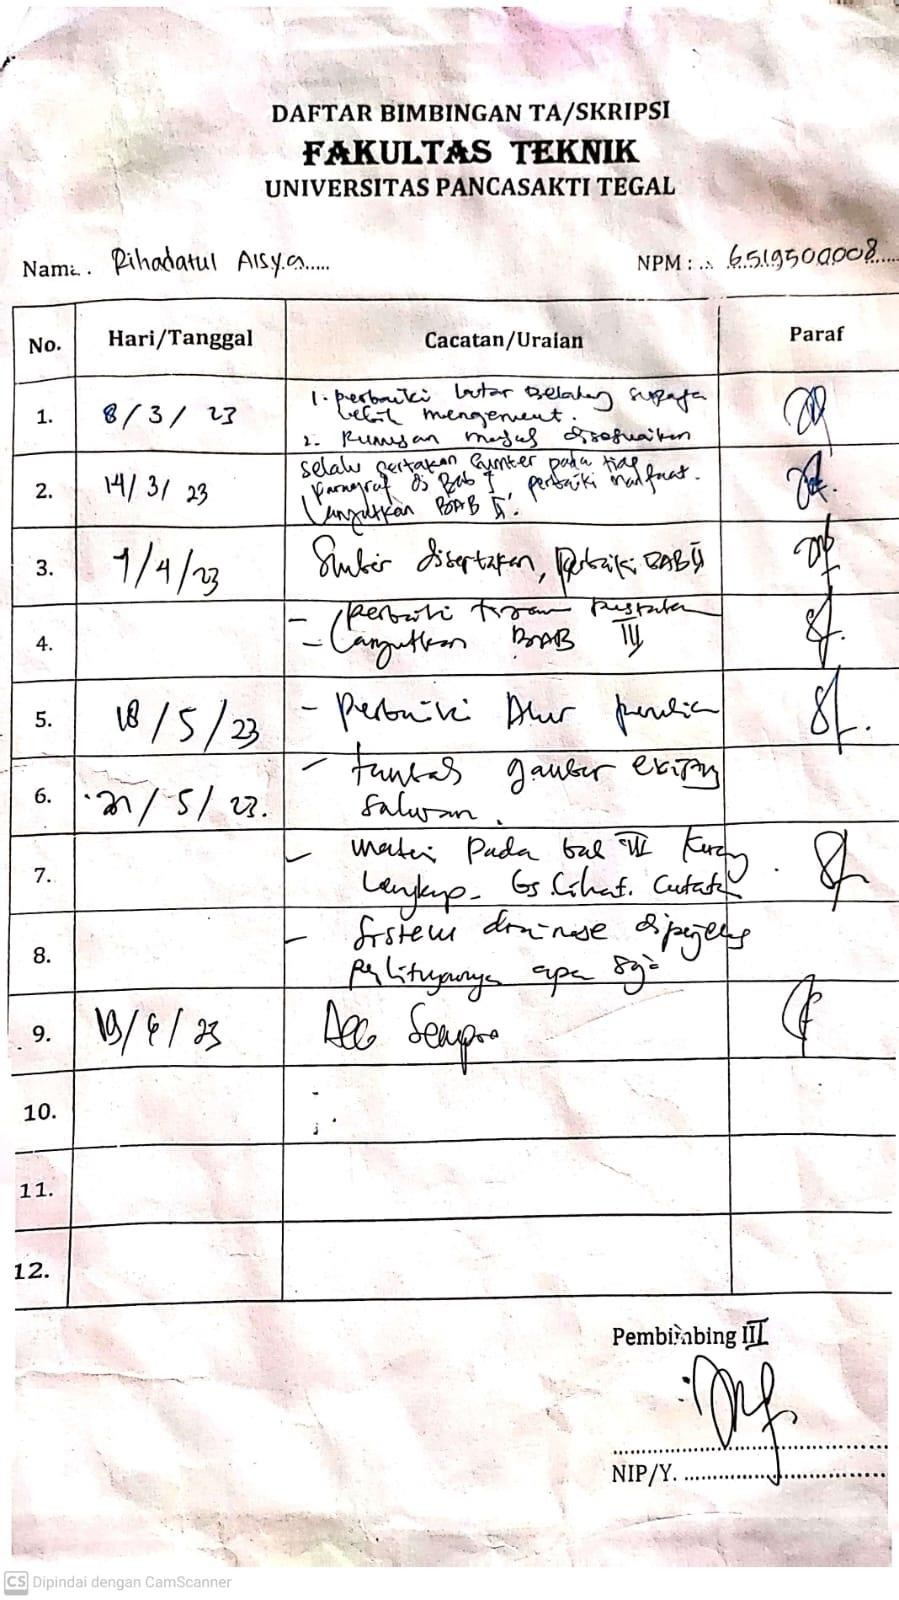 DAFTAR BIMBINGAN TA/SKRIPSI
FAKULTAS TEKNIK
UNIVERSITAS PANCASAKTI TEGAL
Nama. Rihadatul Aisya.....
NPM : .. 6519500008.....
No. Hari/Tanggal Cacatan/Uraian Paraf
1. 8/3/23 1. perbaiki latar Belakang supaya
lebih mengerucut.
2. Rumusan disesuaikan
2. 14/3/23 selalu sertakan sumber pada tiap
Paragraf di Bab I, perbaiki manfaat.
Lanjutkan BAB II.
3. 7/4/23 Sumber disertakan, perbaiki BAB II
4. - perbaiki pustaka
- Lanjutkan BAB III
5. 18/5/23 - Perbaiki Alur
6. 21/5/23. - gambar
saluran.
7. - Materi pada bab III kurang
lengkap.
8. - Sistem drainase
apa
9. 19/6/23 Acc Sempro
10.
11.
12.
Pembimbing III
NIP/Y. ....................
CS Dipindai dengan CamScanner